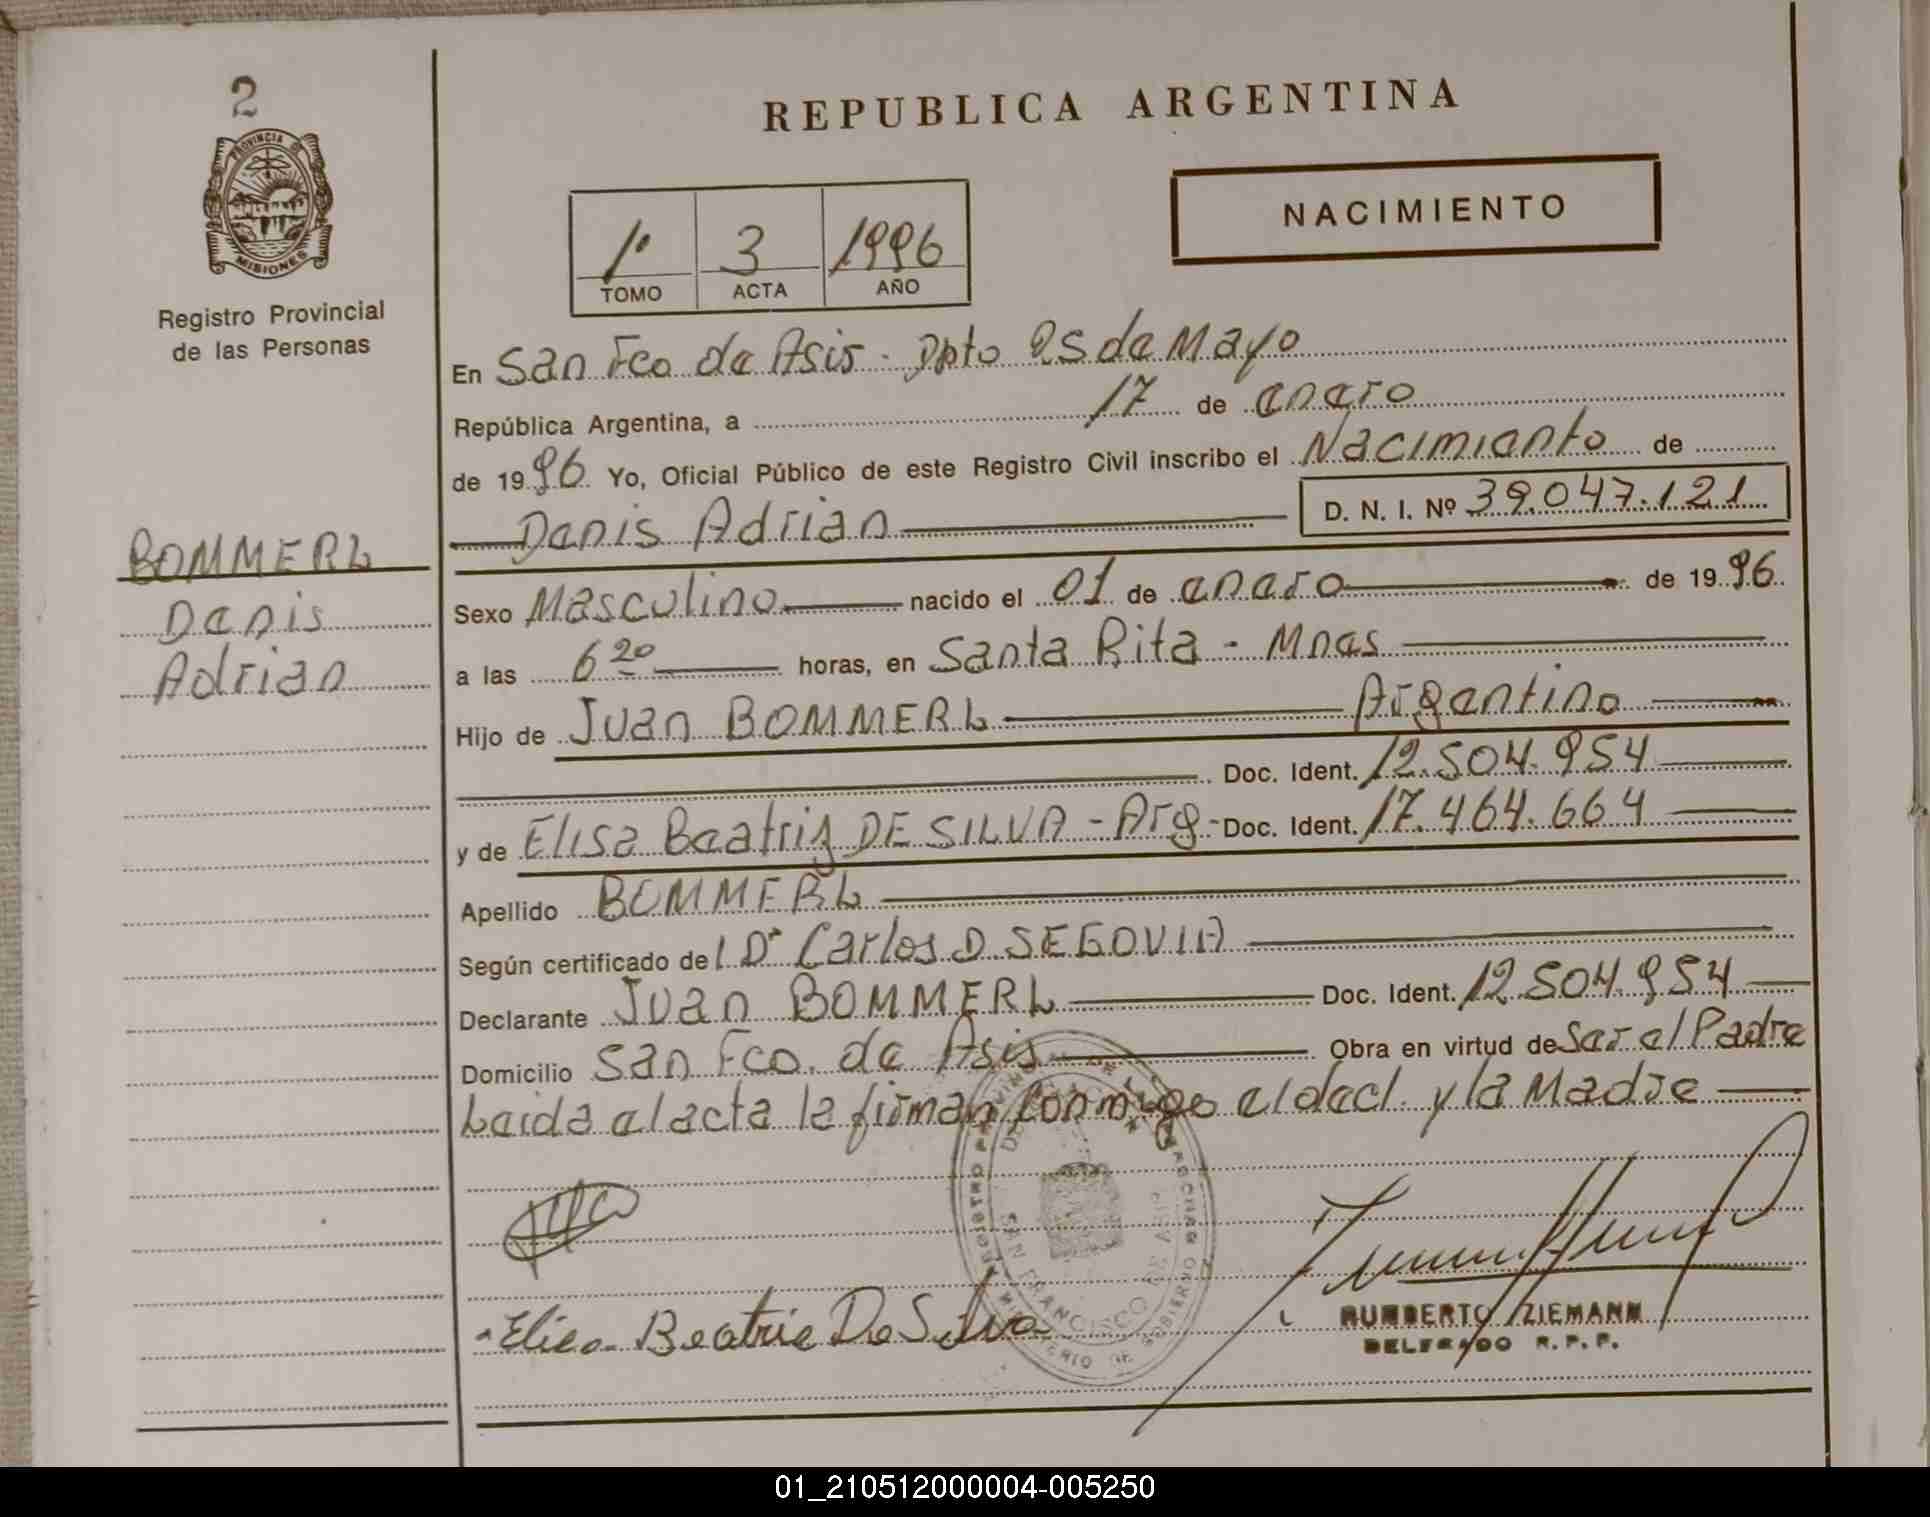 2
PROVINCIA DE
MISIONES
Registro Provincial
de las Personas
BOMMERL
Denis
Adrian
REPUBLICA ARGENTINA
NACIMIENTO
1º 3 1996
TOMO ACTA AÑO
En San Fco de Asis - Dpto 25 de Mayo
República Argentina, a 17 de enero
de 1996 Yo, Oficial Público de este Registro Civil inscribo el Nacimiento de
Denis Adrian D. N. I. Nº 39.047.121
Sexo Masculino nacido el 01 de enero de 1996
a las 6 20 horas, en Santa Rita - Mnes
Hijo de Juan BOMMERL Argentino
Doc. Ident. 12.504.954
y de Elisa Beatriz DE SILVA - Arg - Doc. Ident. 17.464.664
Apellido BOMMERL
Según certificado del Dr Carlos D. SEGOVIA
Declarante Juan BOMMERL Doc. Ident. 12.504.954
Domicilio San Fco. de Asis Obra en virtud de Ser el Padre
Leida el acta la firman conmigo el decl. y la Madre
Elisa Beatriz De Silva
SAN FRANCISCO DE ASIS
MINISTERIO DE GOBIERNO
HUMBERTO ZIEMANN
DELEGADO R. P. P.
01_210512000004-005250